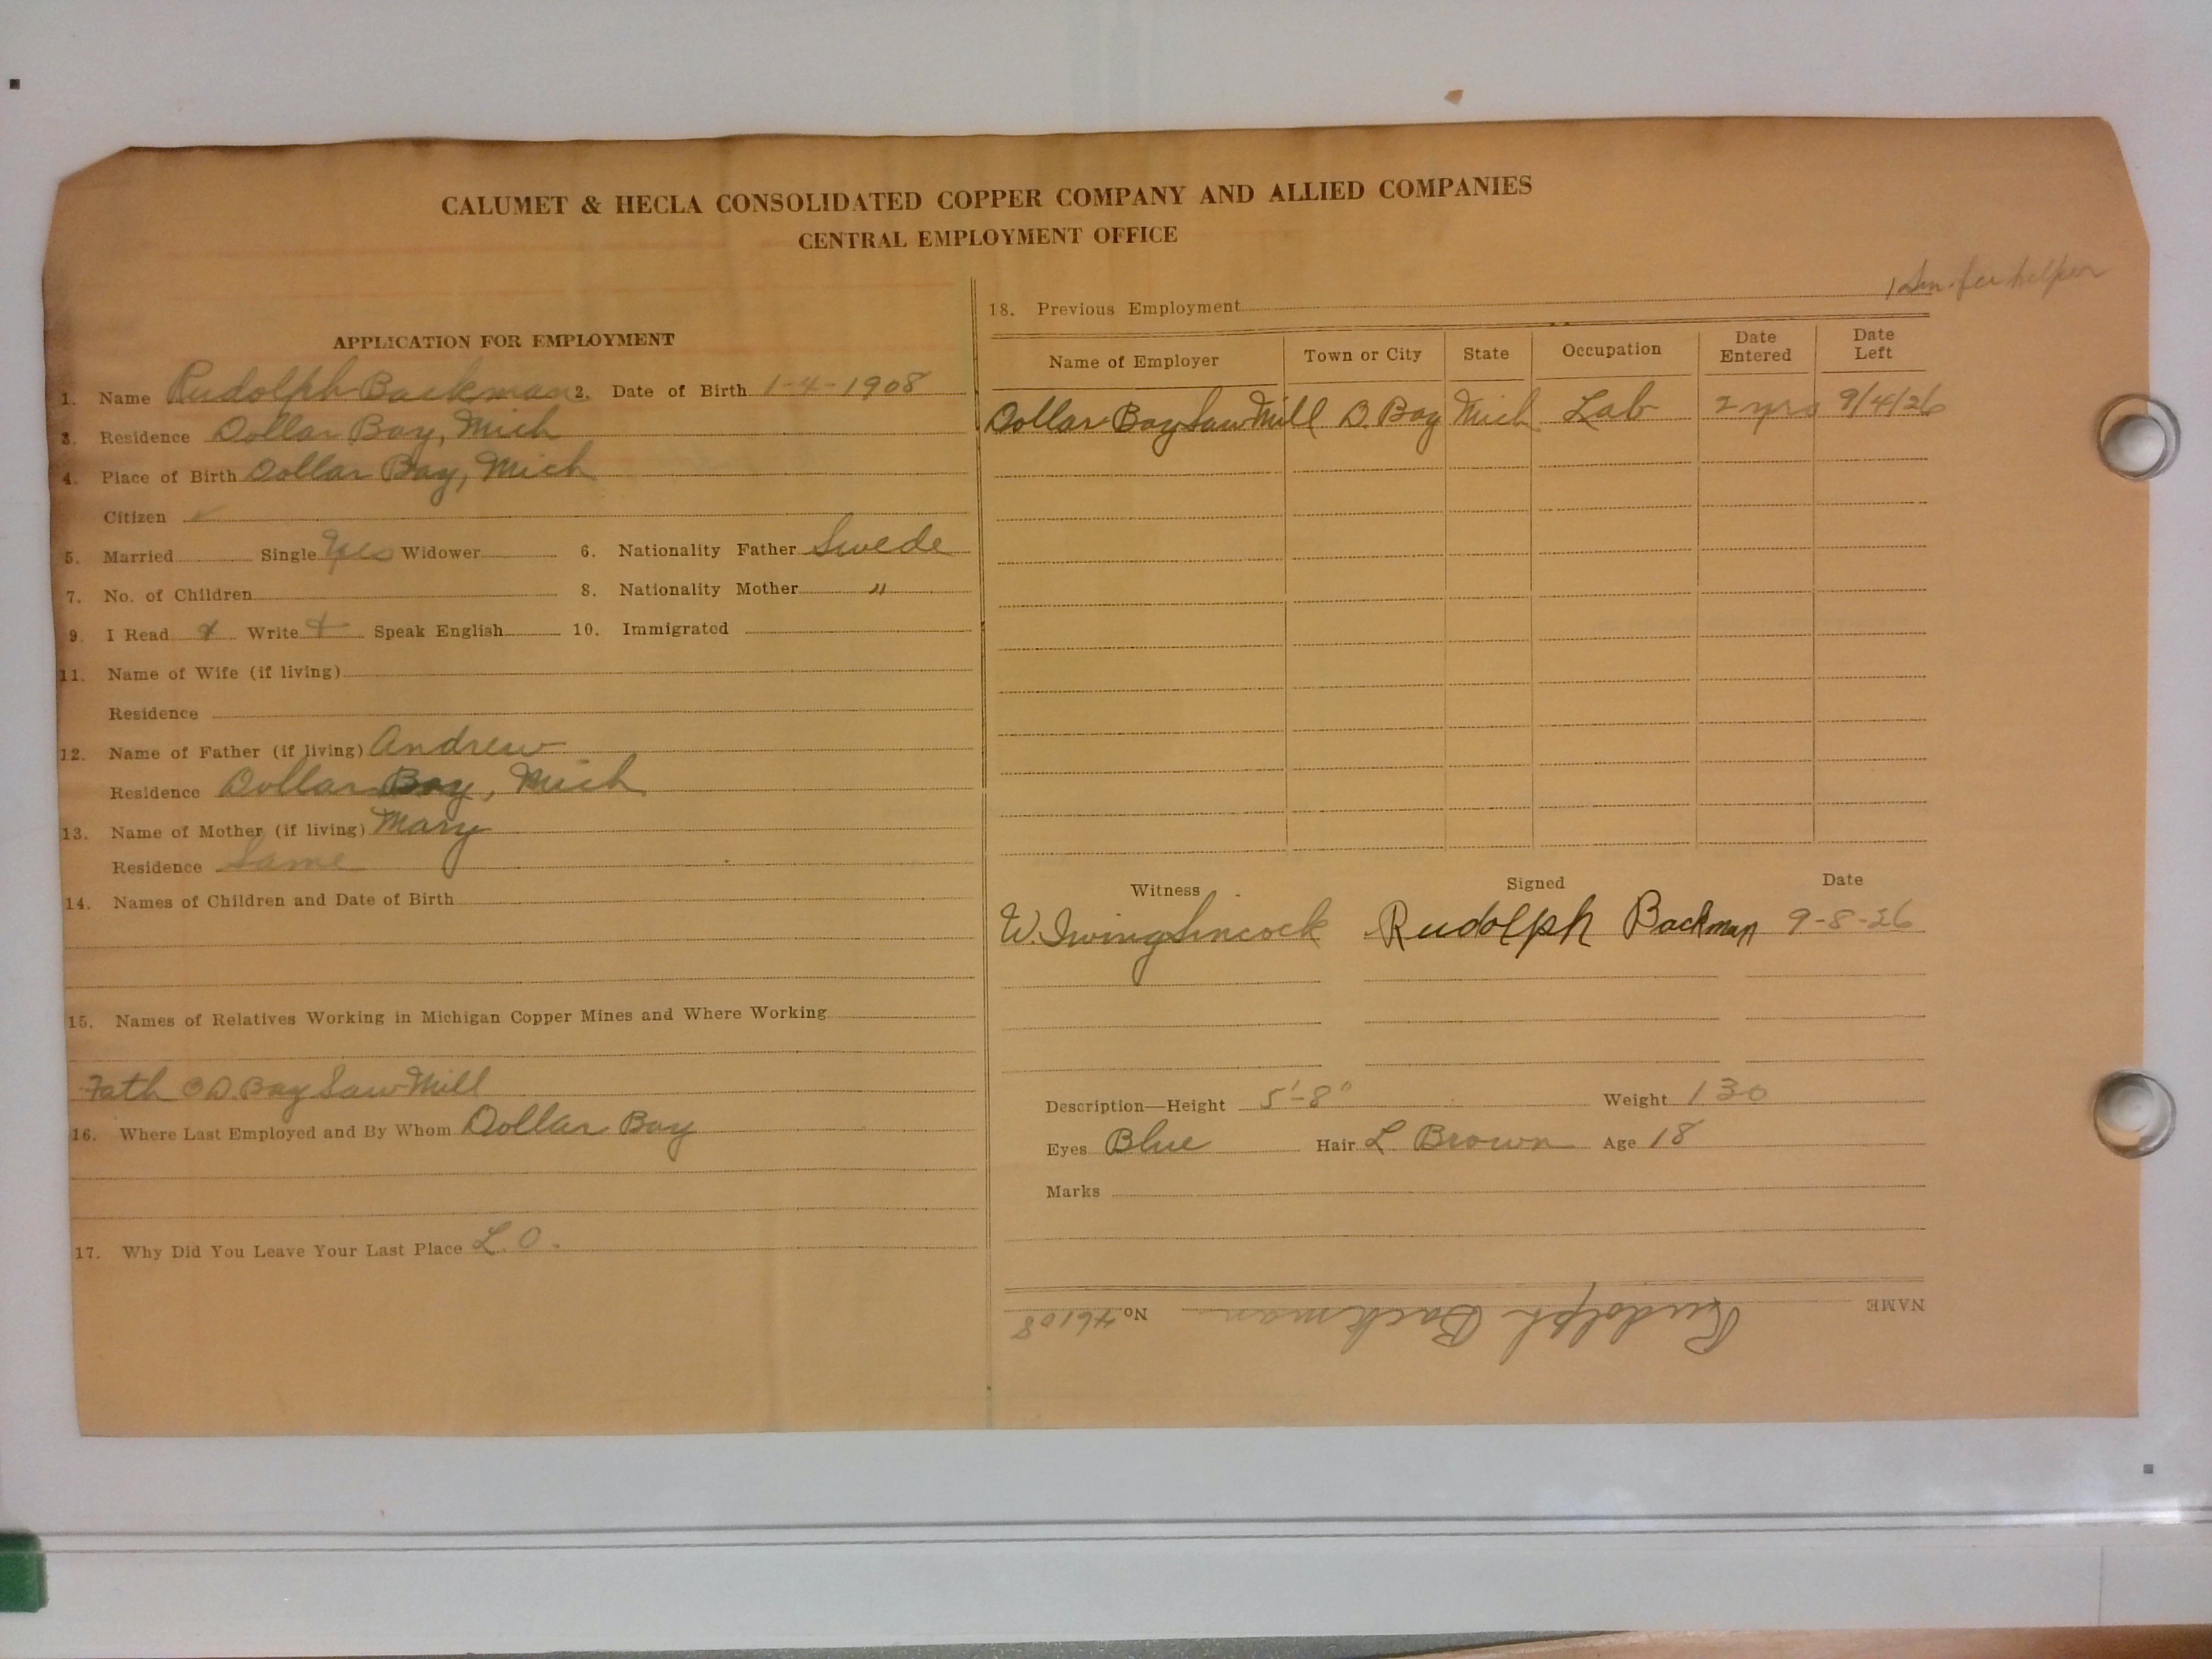 CALUMET & HECLA CONSOLIDATED COPPER COMPANY AND ALLIED COMPANIES
CENTRAL EMPLOYMENT OFFICE
APPLICATION FOR EMPLOYMENT
1. Name Rudolph Backman 2. Date of Birth 1-4-1908
3. Residence Dollar Bay, Mich
4. Place of Birth Dollar Bay, Mich
Citizen ✓
5. Married Single Yes Widower 6. Nationality Father Swede
7. No. of Children 8. Nationality Mother "
9. I Read + Write + Speak English 10. Immigrated
11. Name of Wife (if living)
Residence
12. Name of Father (if living) Andrew
Residence Dollar Bay, Mich
13. Name of Mother (if living) Mary
Residence Same
14. Names of Children and Date of Birth
15. Names of Relatives Working in Michigan Copper Mines and Where Working
Fath D. Bay Saw Mill
16. Where Last Employed and By Whom Dollar Bay
17. Why Did You Leave Your Last Place L.O.
helper
18. Previous Employment
Name of Employer Town or City State Occupation Date Entered Date Left
Dollar Bay Saw Mill D. Bay Mich Lab 2 yrs 9/4/26
Witness Signed Date
W. Irving Hincock Rudolph Backman 9-8-26
Description—Height 5'-8" Weight 130
Eyes Blue Hair L. Brown Age 18
Marks
NAME Rudolph Backman No. 46108